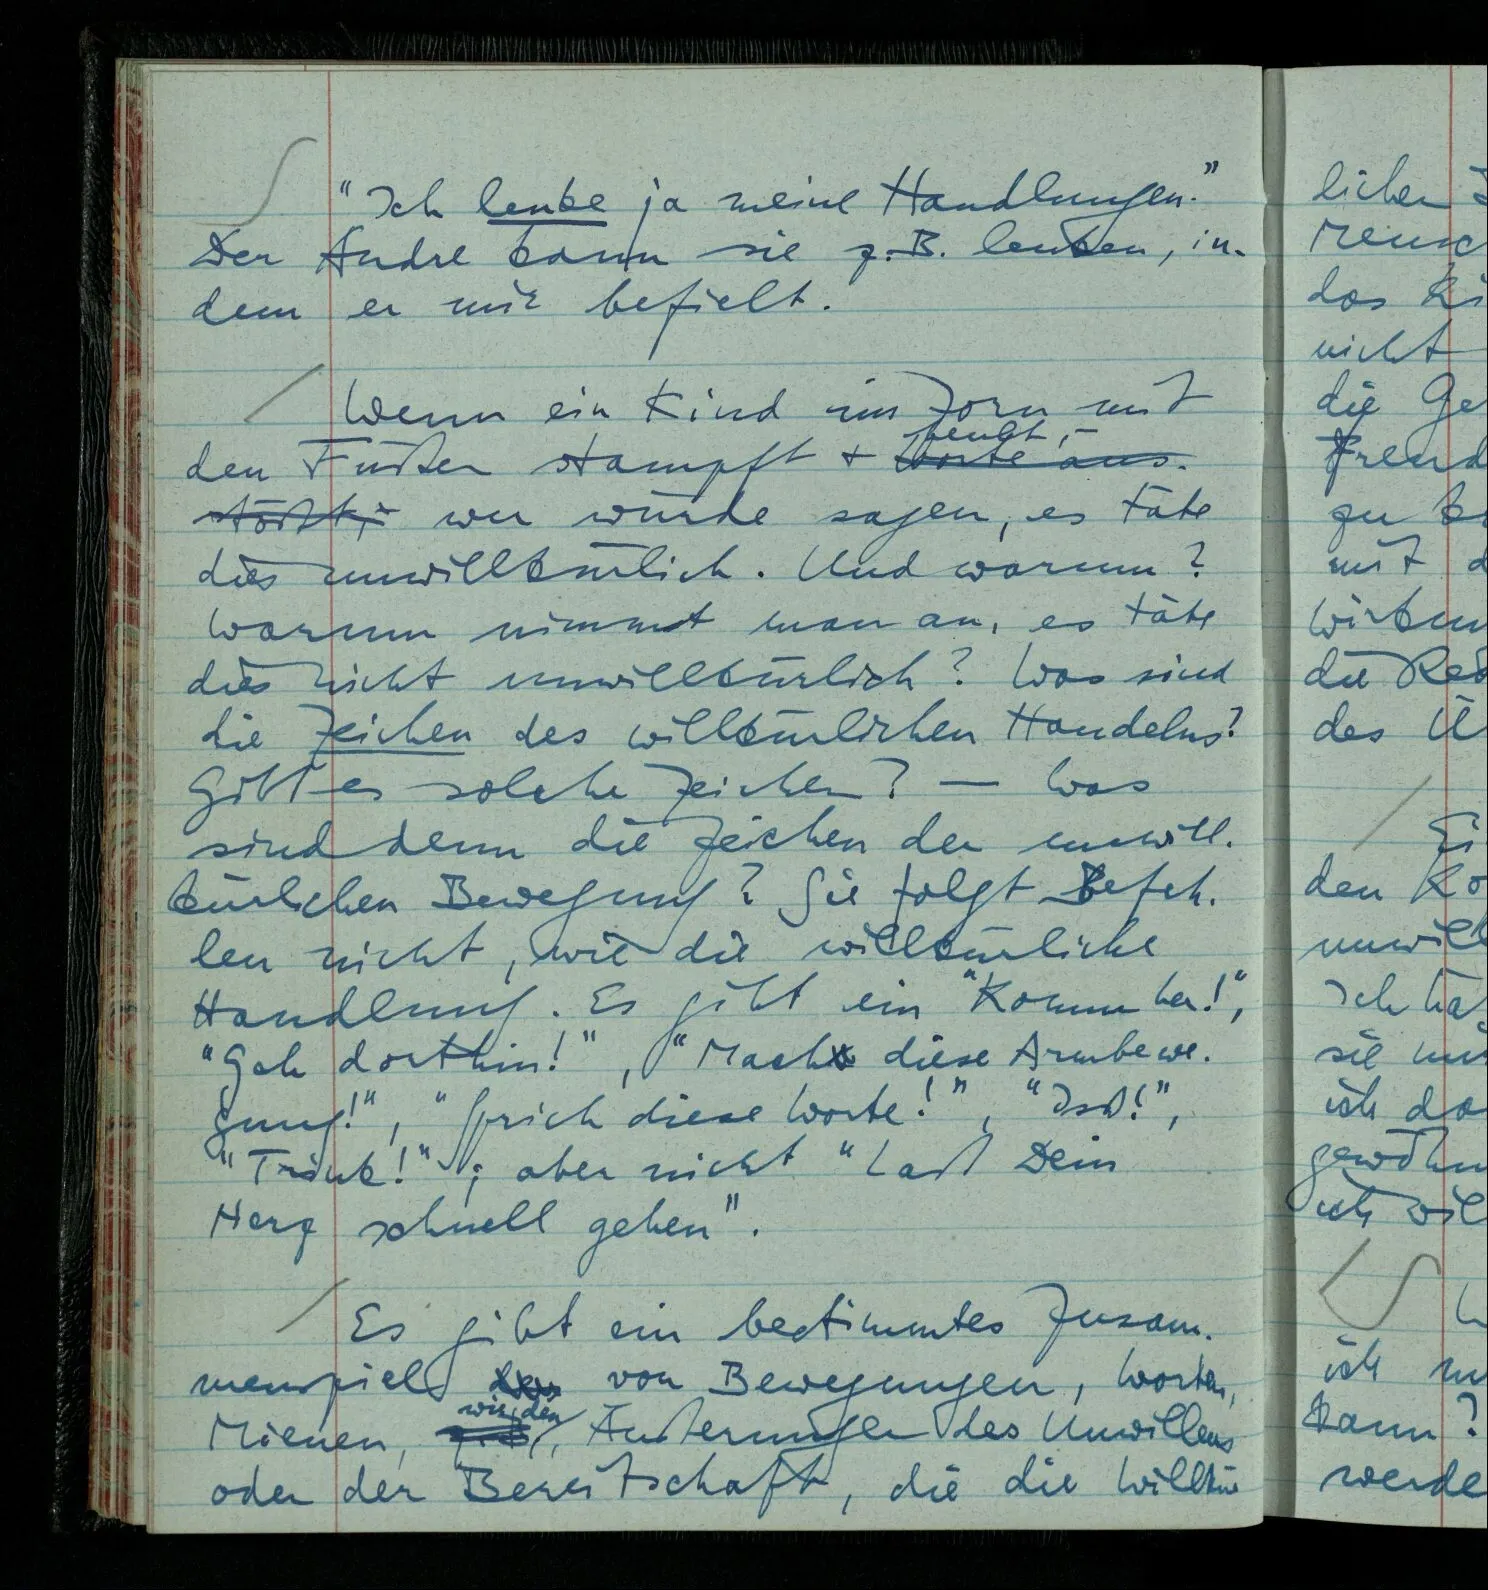 "Ich lenke ja meine Handlungen."
Der Andre kann sie z.B. lenken, in-
dem er mir befielt.
Wenn ein Kind im Zorn mit
den Füßen stampft + Worte aus-
heult, –
stößt, – wer würde sagen, es täte
dies unwillkürlich. Und warum?
Warum nimmt man an, es täte
dies nicht unwillkürlich? Was sind
die Zeichen des willkürlichen Handelns?
Gibt es solche Zeichen? – Was
sind denn die Zeichen der unwill-
kürlichen Bewegung? Sie folgt Befeh-
len nicht, wie die willkürliche
Handlung. Es gibt ein "Komm her!",
"Geh dorthin!", "Mach diese Armbewe-
gung!", "Sprich diese Worte!", "Iss!",
"Trink!"; aber nicht "Laß Dein
Herz schnell gehen".
Es gibt ein bestimmtes Zusam-
menspiel von Bewegungen, Worten,
wie den
Mienen, Äußerungen des Unwillens
oder der Bereitschaft, die die Willkür
lichen
das
nicht
die Ge
zu
mit d
die
des Ü
den Ko
unwill
Ich
sie
ich
ich
ich
kann?
werde